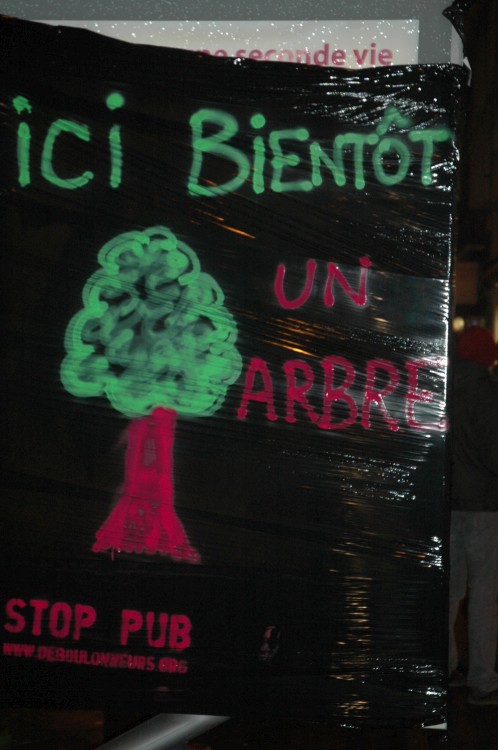 ne seconde vie
ici BIENTÔT
UN
ARBRE
STOP PUB
WWW.DEBOULONNEURS.ORG